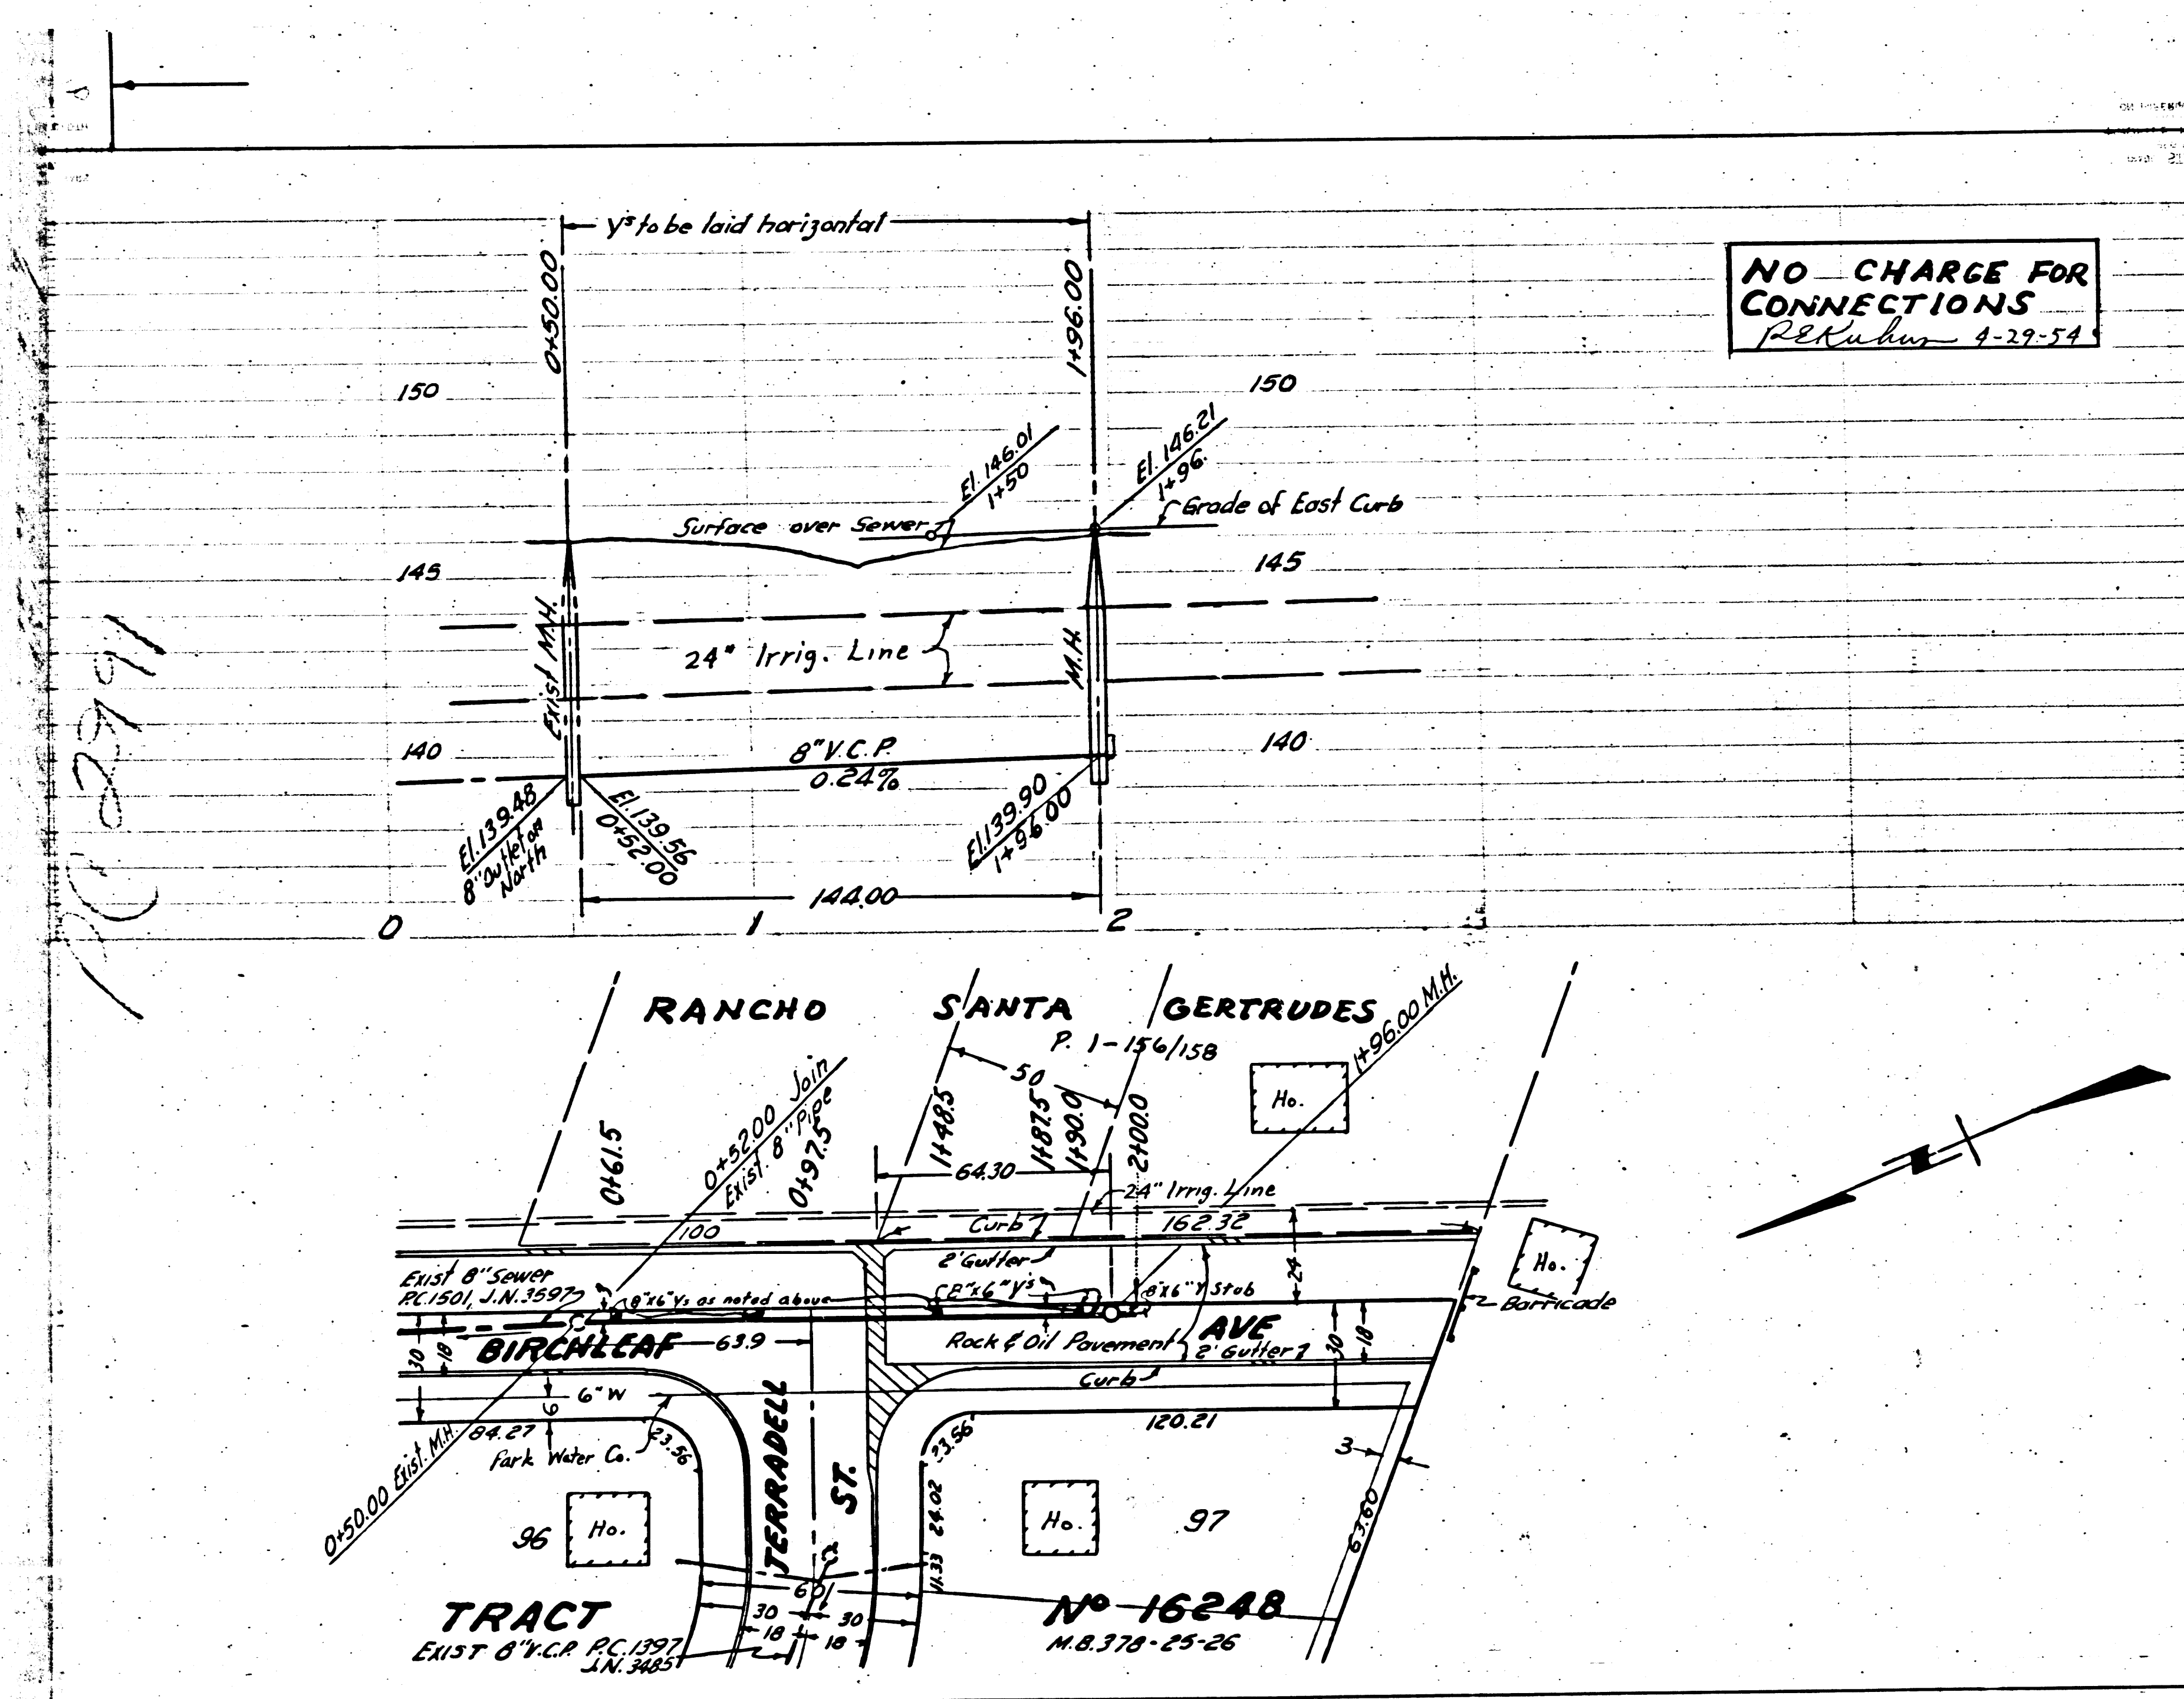 Y's to be laid horizontal
0+50.00
1+96.00
NO CHARGE FOR
CONNECTIONS
4-29-54
150
150
El. 146.01
1+50
El. 146.21
1+96.
Surface over Sewer
Grade of East Curb
145
145
Exist M.H.
24" Irrig. Line
M.H.
140
8" V.C.P.
0.24%
140
El. 139.48
8" Outlet on
North
El. 139.56
0+52.00
El. 139.90
1+96.00
144.00
0
1
2
PC 2991
RANCHO SANTA GERTRUDES
P. 1-156/158
1+96.00 M.H.
50
Ho.
0+61.5
0+52.00 Join
Exist. 8" Pipe
0+97.5
1+48.5
1+87.5
1+90.0
2+00.0
64.30
24" Irrig. Line
100
Curb
162.32
2' Gutter
24
Ho.
Barricade
Exist 8" Sewer
P.C. 1501, J.N. 3597
8"x6" Ys as noted above
8"x6" Y's
8"x6" Y Stub
30
18
BIRCHLEAF
63.9
Rock & Oil Pavement
AVE
2' Gutter
30
18
Curb
6" W
6
84.27
Park Water Co.
23.56
23.56
120.21
3
0+50.00 Exist. M.H.
TERRADELL
ST.
24.02
11.33
63.60
96
Ho.
Ho.
97
60
30
30
18
18
TRACT
No 16248
EXIST 8" V.C.P. P.C. 1397
J.N. 3485
M.B. 378-25-26